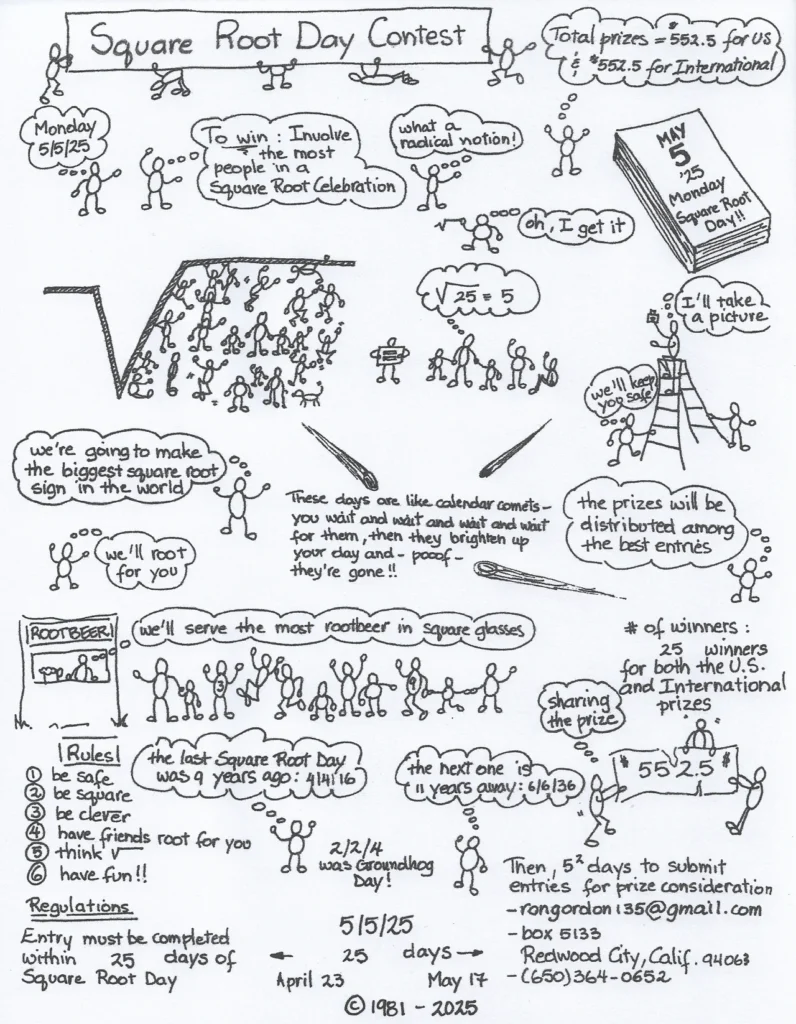 Square Root Day Contest
Total prizes = $552.5 for US
& $552.5 for International
Monday
5/5/25
To win : Involve
the most
people in a
Square Root Celebration
what a
radical notion!
MAY
5
'25
Monday
Square Root
Day!!
√
oh, I get it
√25 = 5
=
I'll take
a picture
we'll keep
you safe
we're going to make
the biggest square root
sign in the world
we'll root
for you
These days are like calendar comets-
you wait and wait and wait and wait
for them, then they brighten up
your day and - pooof -
they're gone!!
the prizes will be
distributed among
the best entries
ROOTBEER
we'll serve the most rootbeer in square glasses
3
9
# of winners :
25 winners
for both the U.S.
and International
prizes
sharing
the prize
$ 552.5 $
Rules
① be safe
② be square
③ be clever
④ have friends root for you
⑤ think √
⑥ have fun!!
the last Square Root Day
was 9 years ago: 4/4/16
the next one is
11 years away: 6/6/36
2/2/4
was Groundhog
Day!
Regulations
Entry must be completed
within 25 days of
Square Root Day
5/5/25
← 25 days →
April 23 May 17
Then, 5² days to submit
entries for prize consideration
- rongordon135@gmail.com
- box 5133
Redwood City, Calif. 94063
- (650)364-0652
© 1981 - 2025